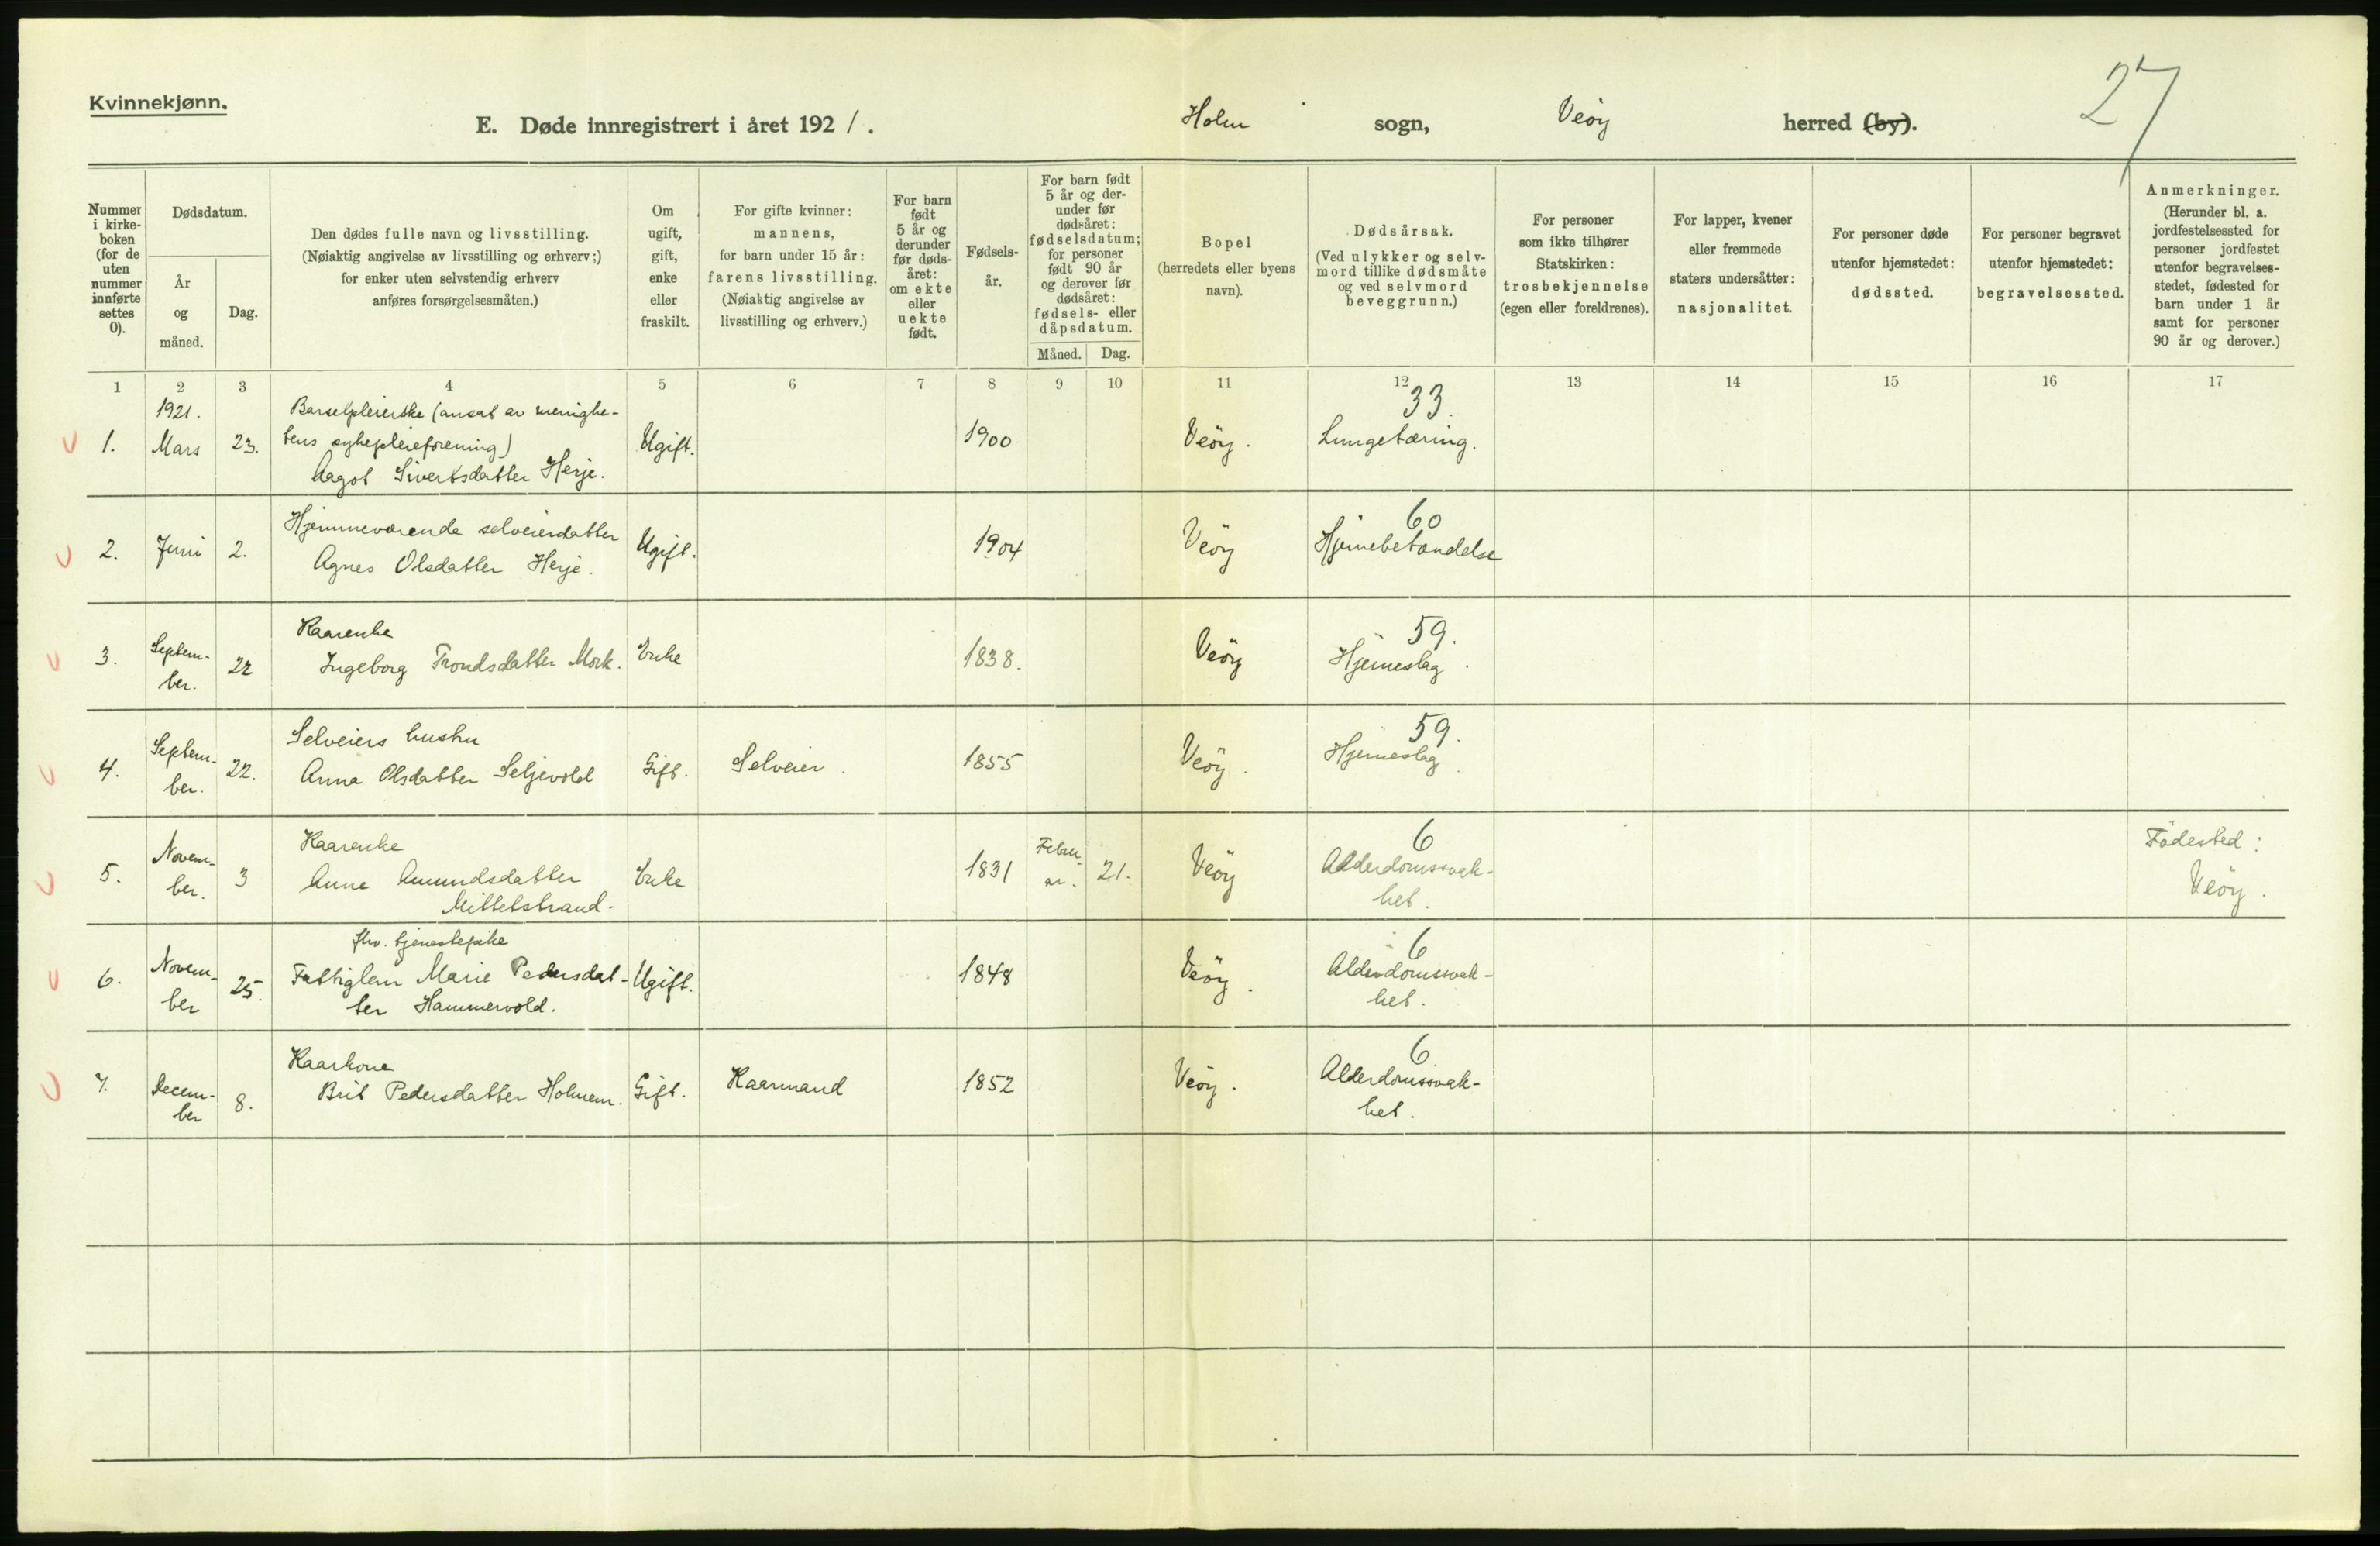 Kvinnekjønn.
E. Døde innregistrert i året 1921. Holm sogn, Veöy herred (by). 27
Nummer i kirke- boken (for de uten nummer innførte settes 0).
Dødsdatum.
År og måned.
Dag.
Den dødes fulle navn og livsstilling.
(Nøiaktig angivelse av livsstilling og erhverv;)
for enker uten selvstendig erhverv
anføres forsørgelsesmåten.)
Om ugift, gift, enke eller fraskilt.
For gifte kvinner:
mannens,
for barn under 15 år:
farens livsstilling.
(Nøiaktig angivelse av
livsstilling og erhverv.)
For barn født 5 år og derunder før døds- året: om ekte eller uekte født.
Fødsels- år.
For barn født 5 år og der- under før dødsåret: fødselsdatum; for personer født 90 år og derover før dødsåret: fødsels- eller dåpsdatum.
Måned. Dag.
Bopel
(herredets eller byens
navn).
Dødsårsak.
(Ved ulykker og selv-
mord tillike dødsmåte
og ved selvmord
beveggrunn.)
For personer
som ikke tilhører
Statskirken:
trosbekjennelse
(egen eller foreldrenes).
For lapper, kvener
eller fremmede
staters undersåtter:
nasjonalitet.
For personer døde
utenfor hjemstedet:
dødssted.
For personer begravet
utenfor hjemstedet:
begravelsessted.
Anmerkninger.
(Herunder bl. a.
jordfestelsessted for
personer jordfestet
utenfor begravelses-
stedet, fødested for
barn under 1 år
samt for personer
90 år og derover.)
1 2 3 4 5 6 7 8 9 10 11 12 13 14 15 16 17
1921. Barselpleierske (ansat av menighe- 33.
1. Mars 23. tens sykepleieforening) Ugift. 1900 Veöy. Lungetæring.
Aagot Sivertsdatter Herje.
Hjemmeværende selveierdatter 60
2. Juni 2. Agnes Olsdatter Herje. Ugift. 1904 Veöy Hjernebetændelse
Kaarenke 59.
3. Septem- 22 Ingeborg Trondsdatter Mork. Enke 1838. Veöy Hjerneslag.
ber.
Selveiers hustru 59.
4. Septem- 22. Anna Olsdatter Seljevold Gift. Selveier. 1855 Veöy. Hjerneslag.
ber.
Kaarenke 6 Födested:
5. Novem- 3 Anne Amundsdatter Enke 1831 Febru- 21. Veöy Alderdomssvak- Veöy.
ber. Mittetstrand. ar. het.
fhv. tjenestepike 6
6. Novem- 25. Fattiglem Marie Pedersdat- Ugift. 1848 Veöy. Alderdomssvak-
ber ter Hammervold. het.
Kaarkone 6
7. Decem- 8. Brit Pedersdatter Holmem. Gift. Kaarmand 1852 Veöy. Alderdomssvak-
ber het.